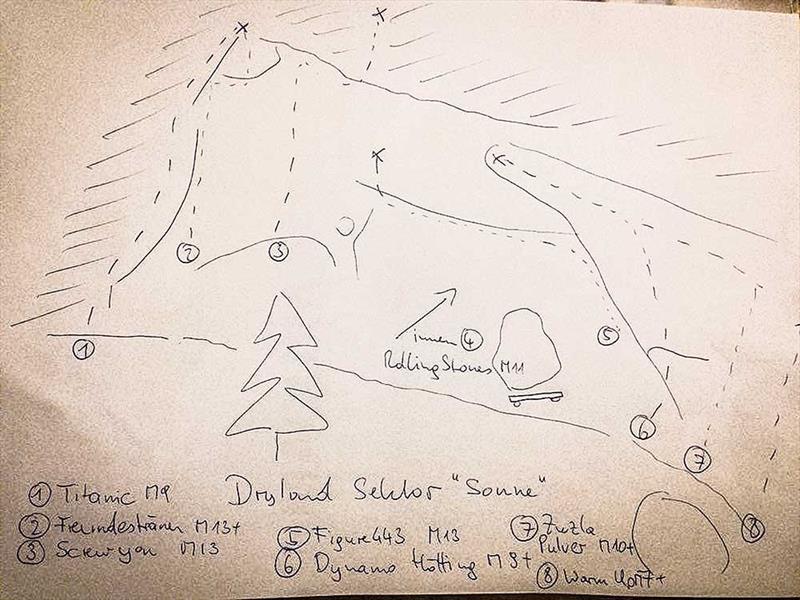 ①
②
③
innen ④
Rolling Stones M11
⑤
⑥
⑦
⑧
Dryland Sektor "Sonne"
① Titanic M9
② Freundestränen M13+
③ Screw you M13
⑤ Figure443 M13
⑥ Dynamo Hötting M9+
⑦ Zuzla
Pulver M10+
⑧ Warm Up M7+